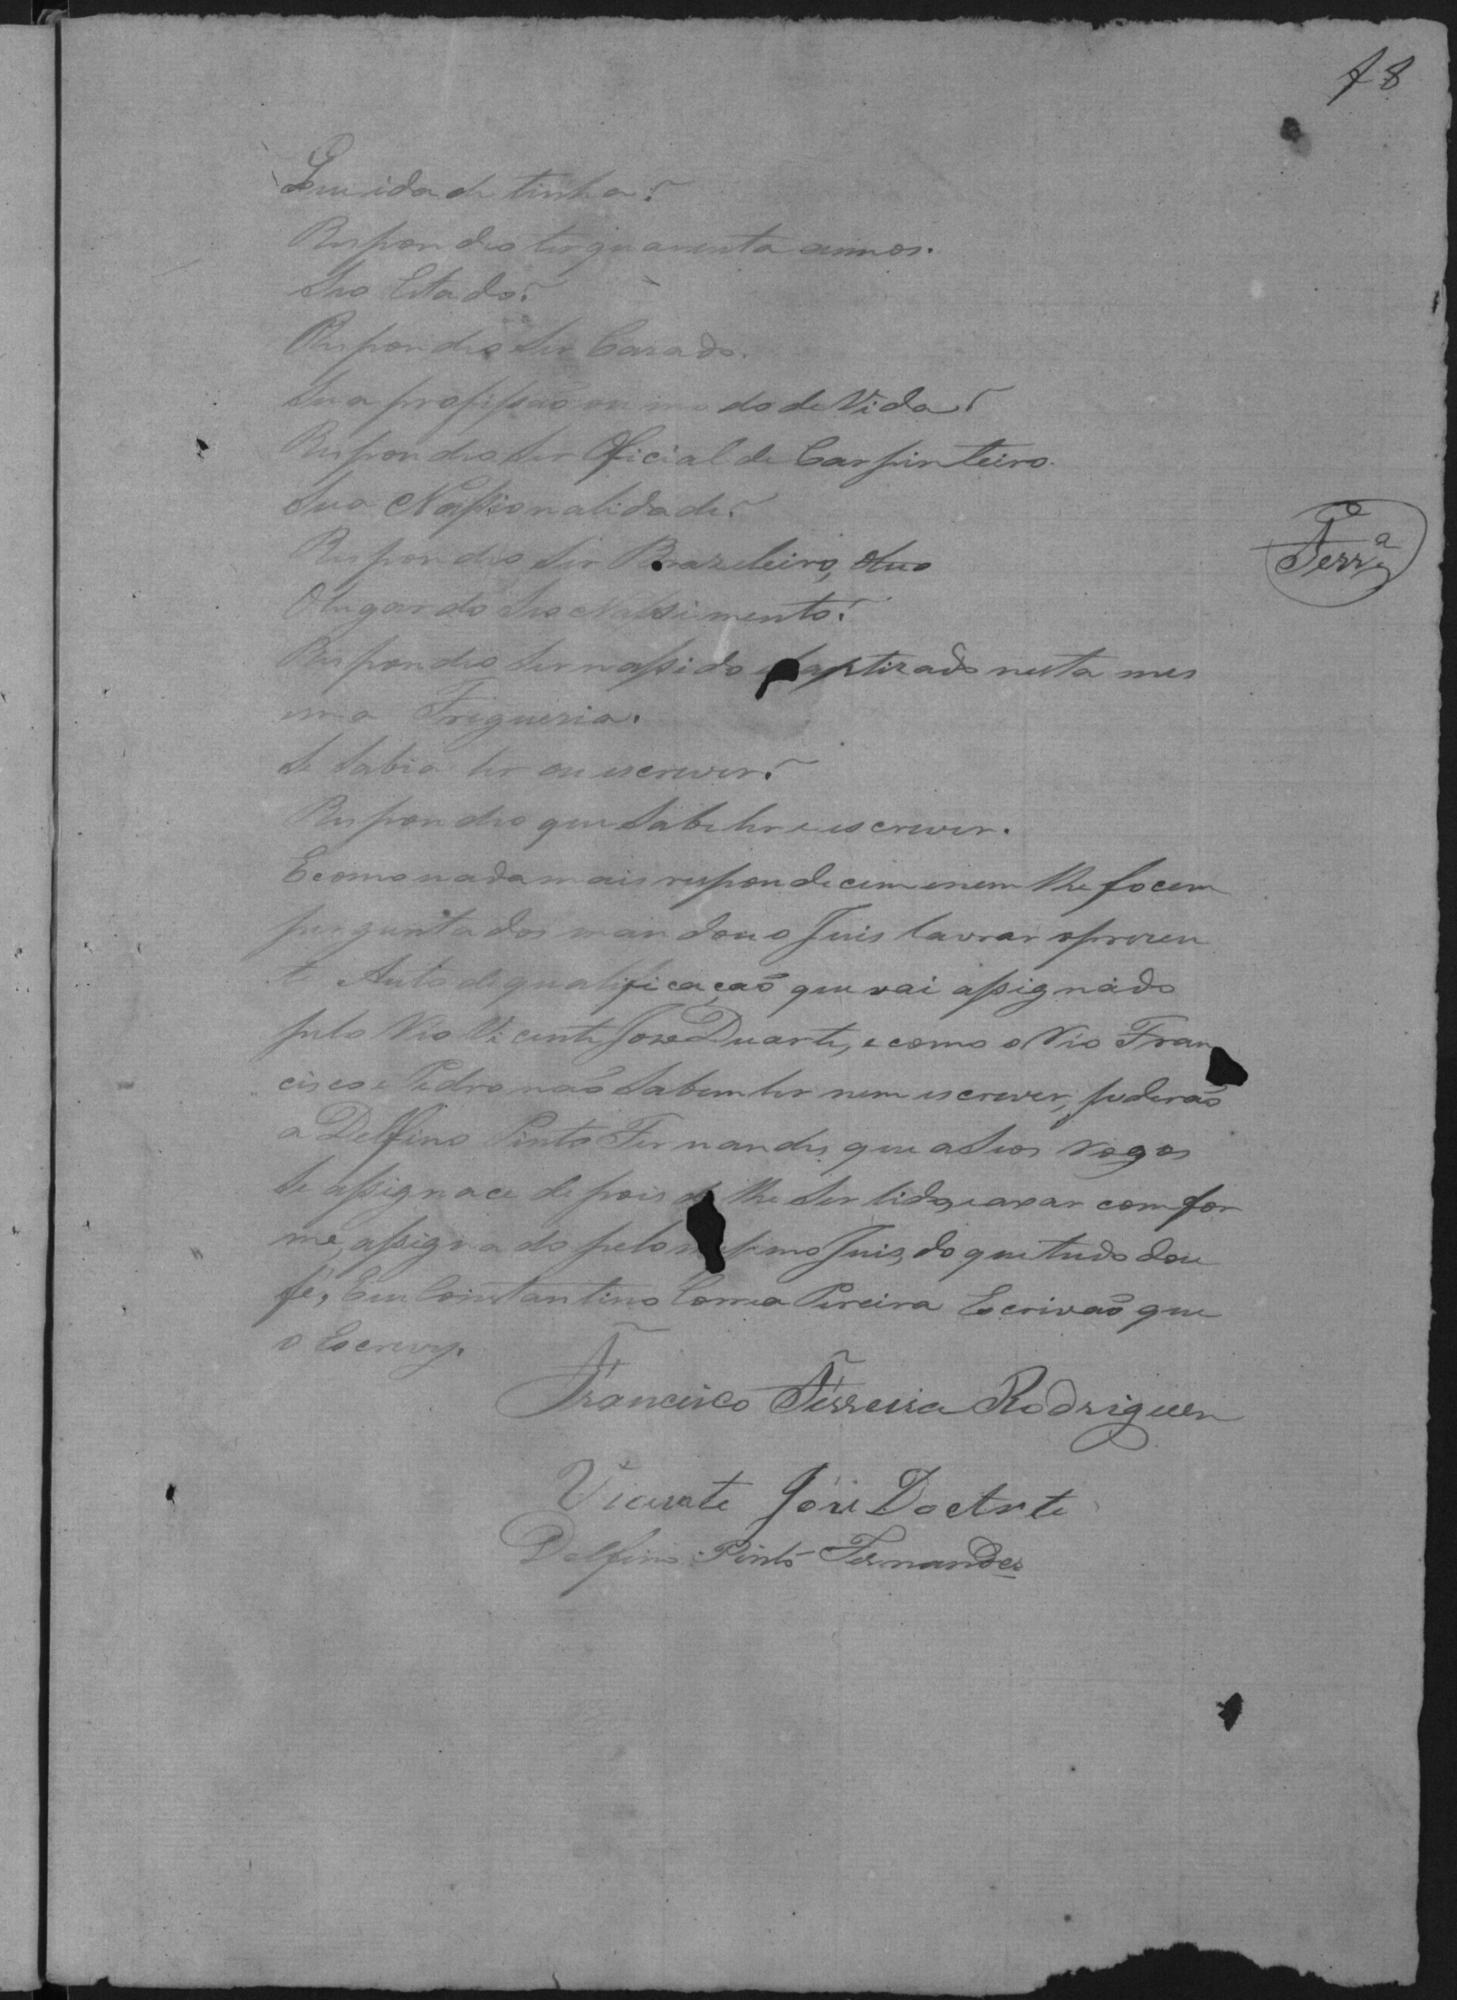 18
Que idade tinha?
Respondeo ter quarenta annos.
Seo Estado?
Respondeo Ser Casado.
Sua profissão ou modo de Vida?
Respondeo Ser Oficial de Carpinteiro.
Sua Nassionalidade?
Respondeo Ser Brazileiro,
O lugar do Seo Nassimento?
Ferrª
Respondeo Ser nassido e baptizado nesta mes
ma Freguezia.
Se Sabia ler ou escrever?
Respondeo que Sabe ler e escrever.
E como nada mais respondecem e nem lhe focem
perguntados mandou o Juis lavrar o prezen
te Auto de qualificação que vai assignádo
pelo Reo Vicente Jose Duarte, e como o Reo Fran
cisco e Pedro não Sabem ler nem escrever, pederão
a Delfino Pinto Fernandes que a Seos rogos
Se assignace depois de lhe Ser lido, e axar comfor
me, assignado pelo mesmo Juis, do que tudo dou
fé, Eu Constantino Correa Pereira Escrivaõ que
o Escrevy.
Francisco Ferreira Rodrigues
Vicente Jose Doarte
Delfino Pinto Fernandes